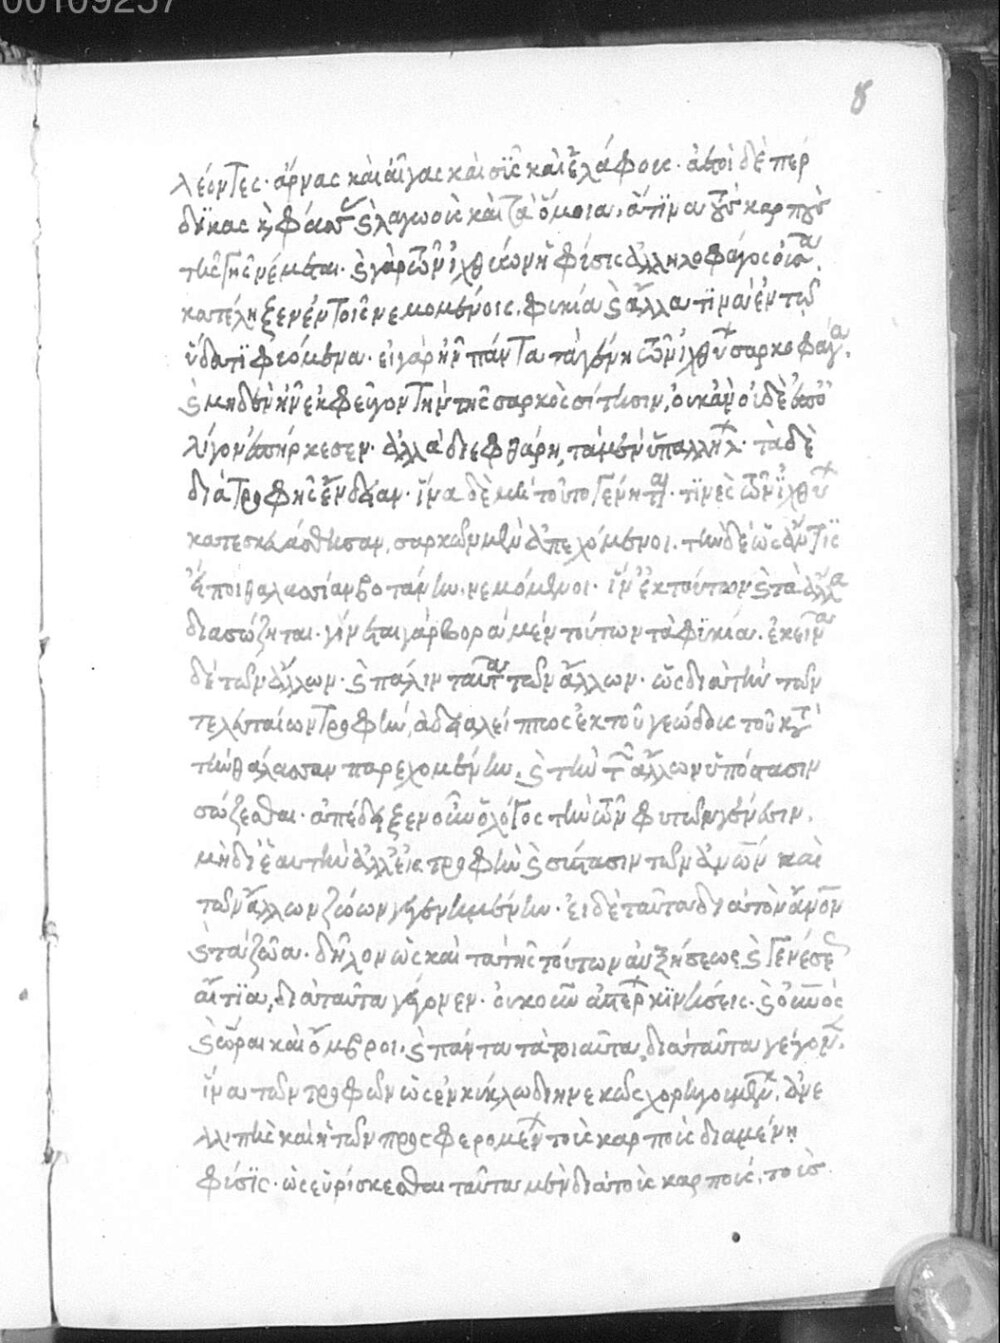 00109257
8
λέοντες· ἄρνας καὶ αἶγας καὶ οἷς καὶ ἐλάφους· ἀετοὶ δὲ πέρ
δυκας κ φάσσ ς λαγωοὺς καὶ τὰ ὅμοια· ἅτινα τοὺς καρποὺς
τῆς γῆς νέμεται· ς γὰρ τῶν ἰχθύων ἡ φύσις ἀλληλοφάγος οὖσα,
κατέληξεν ἐν τοῖς νεμομένοις φυκία ς ἄλλα τινα ἐν τῷ
ὕδατι φυόμενα· εἰ γὰρ ἦν πάντα τὰ γένη τῶν ἰχθύ σαρκοφάγα.
ς μηδὲν ἦν ἐκφεῦγον τὴν τῆς σαρκὸς σίτησιν, οὐκ ἂν οὐδὲ ἐπ
λίγον ἐπήρκεσεν· ἀλλὰ διεφθάρη, τὰ μὲν ὑπαλλήλ· τὰ δὲ
διὰ τροφῆς ἔνδειαν· ἵνα δὲ μὴ τοῦτο γένηται· τινὲς τῶν ἰχθύ
κατεσκευάσθησαν, σαρκῶν μὲν ἀπεχόμενοι. τὴν δὲ ὡς ἄν τις
εἴποι θαλασσίαν βοτάνην νεμόμενοι· ἵν ἐκ τούτων ς τὰ ἄλλα
διασώζηται· γίνεται γὰρ βορὰ μὲν τούτων τὰ φυκία· ἐκεῖνα
δὲ τῶν ἄλλων· ς πάλιν ταῦτα τῶν ἄλλων· ὡς διὰ τὴν τῶν
τελευταίων τροφὴν, ἀδιαλείπτως ἐκ τοῦ γεώδους τοῦ κατὰ
τὴν θάλασσαν παρεχομένην, ς τὴν τῶν ἄλλων ὑπόστασιν
σώζεσθαι· ἀπέδειξεν οὖν ὁ λόγος τὴν τῶν φυτῶν γένεσιν,
μὴ δι ἑαυτὴν ἀλλ εἰς τροφὴν ς σύστασιν τῶν ἀνων καὶ
τῶν ἄλλων ζώων γεγενημένην· εἰ δὲ ταῦτα διὰ τὸν ἄνον
ς τὰ ζῶα· δῆλον ὡς καὶ τὰ τῆς τούτων αὐξήσεως ς γενέσε
αἴτια, διὰ ταῦτα γέγονεν· οὐκοῦν κινήσεις· ς οὐνὸς
ς ὧραι καὶ ὄμβροι· ς πάντα τὰ τοιαῦτα, διὰ ταῦτα γέγον·
ἵνα τῶν τροφῶν ὡς ἐν κύκλω διηνεκῶς χορηγουμέν, ἀνε
λλιπὴς καὶ ἡ τῶν προσφερομέν τοὺς καρποὺς διαμένη
φύσις· ὡς εὑρίσκεσθαι ταῦτα μὲν διὰ τοὺς καρποὺς, τοὺς